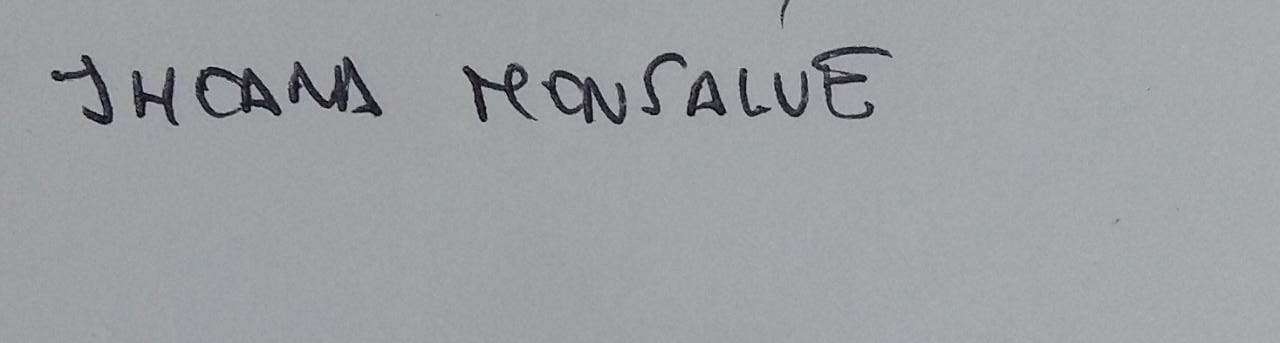 JHOANA MONSALVE